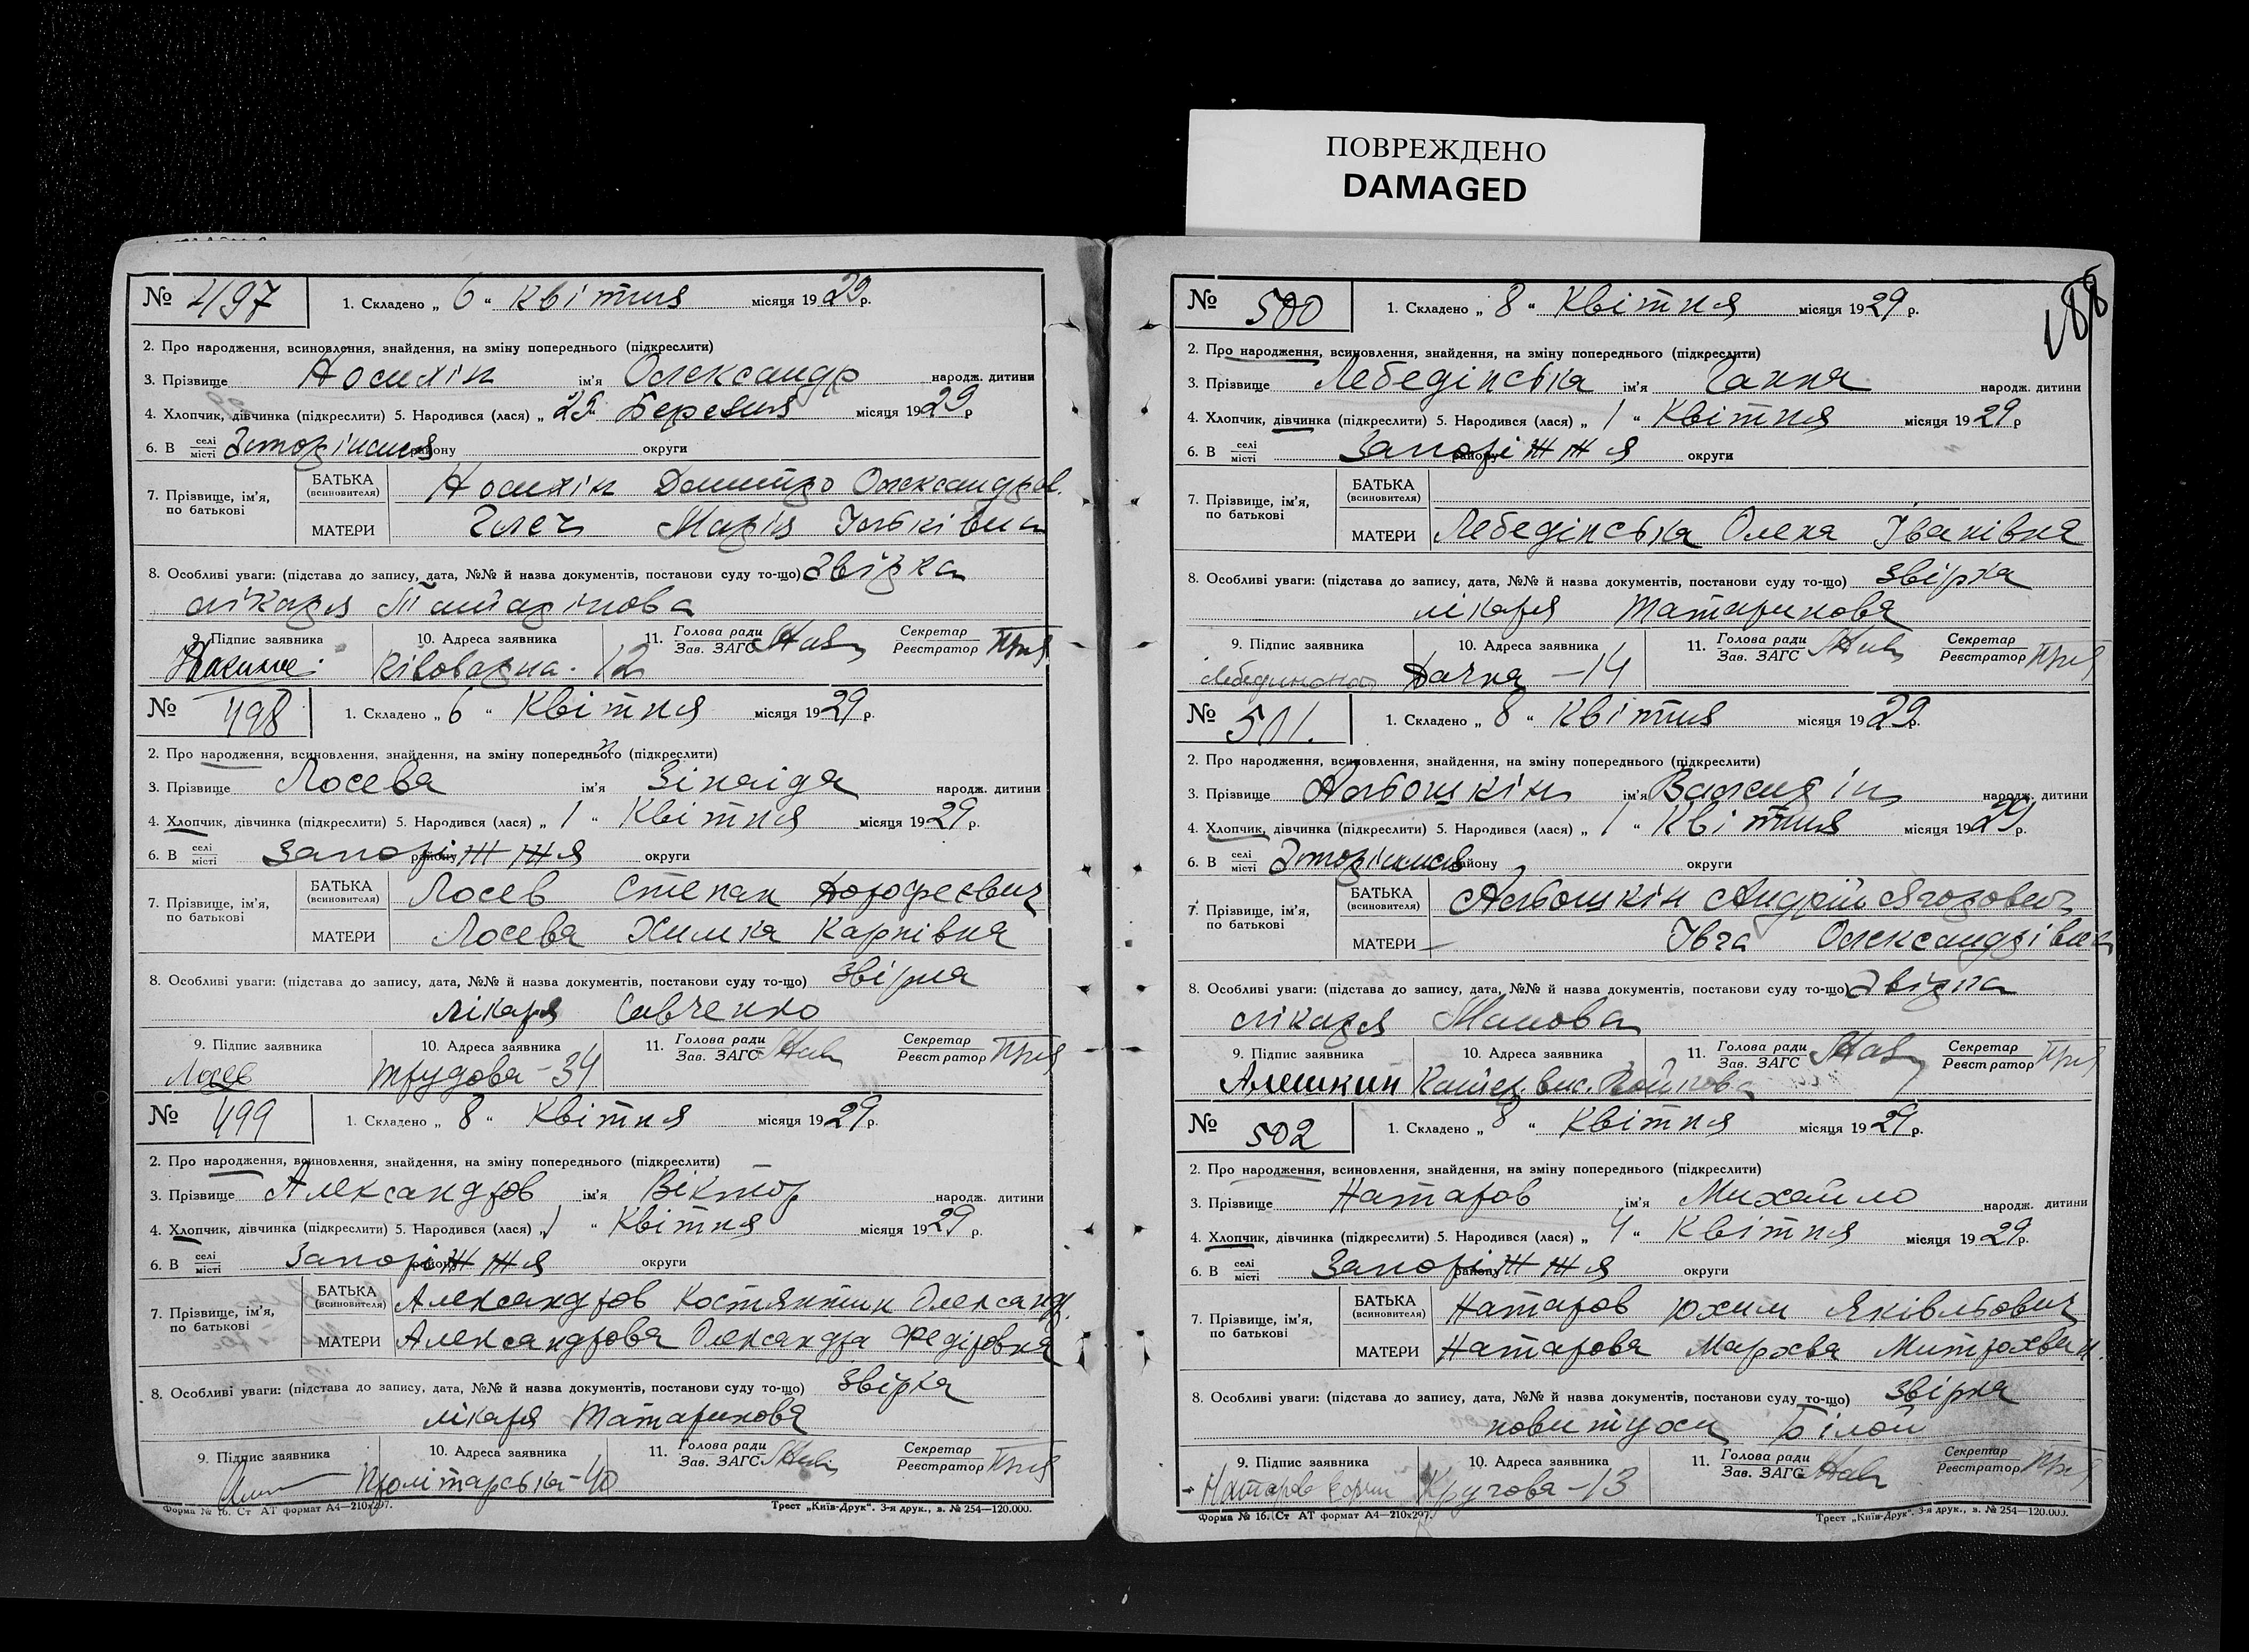 ПОВРЕЖДЕНО
DAMAGED
№ 497 1. Складено „ 6 “ Квітня місяця 1929 р.
2. Про народження, всиновлення, знайдення, на зміну попереднього (підкреслити)
3. Прізвище Носихін ім’я Олександр народж. дитини
4. Хлопчик, дівчинка (підкреслити) 5. Народився (лася) „ 25 Березня місяця 1929 р
6. В селі місті Запоріжжя району округи
7. Прізвище, ім’я, по батькові
БАТЬКА (всиновителя) Носихін Дмитро Олександров.
МАТЕРИ Марія
8. Особливі уваги: (підстава до запису, дата, №№ й назва документів, постанови суду то-що) Звірка
лікаря Татарінова
9. Підпис заявника 10. Адреса заявника 11. Голова ради Зав. ЗАГС Секретар Реєстратор
12
№ 498 1. Складено „ 6 “ Квітня місяця 1929 р.
2. Про народження, всиновлення, знайдення, на зміну попереднього (підкреслити)
3. Прізвище Лосева ім’я Зінаіда народж. дитини
4. Хлопчик, дівчинка (підкреслити) 5. Народився (лася) „ 1 “ Квітня місяця 1929 р.
6. В селі місті Запоріжжя району округи
7. Прізвище, ім’я, по батькові
БАТЬКА (всиновителя) Лосев Степан Дорофеєвич
МАТЕРИ Лосева Химка Карпівна
8. Особливі уваги: (підстава до запису, дата, №№ й назва документів, постанови суду то-що) Звірка
лікаря Савченко
9. Підпис заявника 10. Адреса заявника 11. Голова ради Зав. ЗАГС Секретар Реєстратор
Лосев Трудова - 34
№ 499 1. Складено „ 8 “ Квітня місяця 1929 р.
2. Про народження, всиновлення, знайдення, на зміну попереднього (підкреслити)
3. Прізвище Александров ім’я Віктор народж. дитини
4. Хлопчик, дівчинка (підкреслити) 5. Народився (лася) „ 1 “ Квітня місяця 1929 р.
6. В селі місті Запоріжжя району округи
7. Прізвище, ім’я, по батькові
БАТЬКА (всиновителя) Александров Костянтин Олександр.
МАТЕРИ Александрова Олександра Федіровна
8. Особливі уваги: (підстава до запису, дата, №№ й назва документів, постанови суду то-що) Звірка
лікаря Татаринова
9. Підпис заявника 10. Адреса заявника 11. Голова ради Зав. ЗАГС Секретар Реєстратор
Пролітарська - 40
Форма № 16. Ст АТ формат А4—210х297. Трест „Київ-Друк“. 3-я друк., з. № 254—120.000.
188
№ 500 1. Складено „ 8 “ Квітня місяця 1929 р.
2. Про народження, всиновлення, знайдення, на зміну попереднього (підкреслити)
3. Прізвище Лебедінська ім’я Ганна народж. дитини
4. Хлопчик, дівчинка (підкреслити) 5. Народився (лася) „ 1 “ Квітня місяця 1929 р
6. В селі місті Запоріжжя району округи
7. Прізвище, ім’я, по батькові
БАТЬКА (всиновителя)
МАТЕРИ Лебедінська Олена Іванівна
8. Особливі уваги: (підстава до запису, дата, №№ й назва документів, постанови суду то-що) Звірка
лікаря Татаринова
9. Підпис заявника 10. Адреса заявника 11. Голова ради Зав. ЗАГС Секретар Реєстратор
Дачна - 14
№ 501. 1. Складено „ 8 “ Квітня місяця 1929 р.
2. Про народження, всиновлення, знайдення, на зміну попереднього (підкреслити)
3. Прізвище Альошкін ім’я народж. дитини
4. Хлопчик, дівчинка (підкреслити) 5. Народився (лася) „ 1 “ Квітня місяця 1929 р.
6. В селі місті Запоріжжя району округи
7. Прізвище, ім’я, по батькові
БАТЬКА (всиновителя) Альошкін Андрій
МАТЕРИ — Івга Олександрівна
8. Особливі уваги: (підстава до запису, дата, №№ й назва документів, постанови суду то-що) Звірка
лікаря
9. Підпис заявника 10. Адреса заявника 11. Голова ради Зав. ЗАГС Секретар Реєстратор
Алешкин
№ 502 1. Складено „ 8 “ Квітня місяця 1929 р.
2. Про народження, всиновлення, знайдення, на зміну попереднього (підкреслити)
3. Прізвище Натаров ім’я Михайло народж. дитини
4. Хлопчик, дівчинка (підкреслити) 5. Народився (лася) „ 4 “ Квітня місяця 1929 р.
6. В селі місті Запоріжжя району округи
7. Прізвище, ім’я, по батькові
БАТЬКА (всиновителя) Натаров Юхим Яківльович
МАТЕРИ Натарова Мархва Митрохван.
8. Особливі уваги: (підстава до запису, дата, №№ й назва документів, постанови суду то-що) Звірка
повитухи Білой
9. Підпис заявника 10. Адреса заявника 11. Голова ради Зав. ЗАГС Секретар Реєстратор
Кругова - 13
Форма № 16. Ст АТ формат А4—210х297. Трест „Київ-Друк“. 3-я друк., з. № 254—120.000.